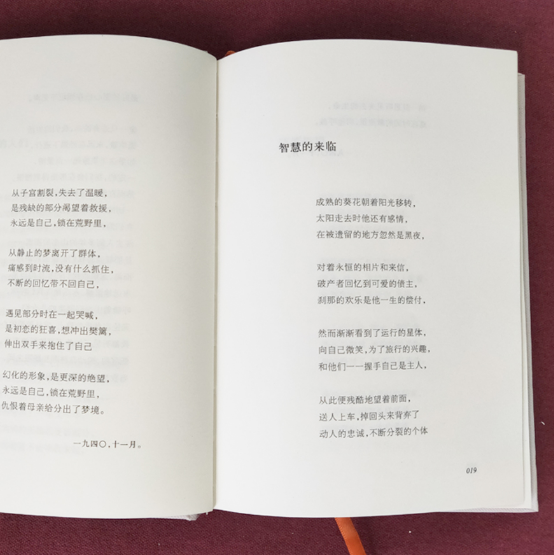 从子宫割裂，失去了温暖，
是残缺的部分渴望着救援，
永远是自己，锁在荒野里，
从静止的梦离开了群体，
痛感到时流，没有什么抓住，
不断的回忆带不回自己，
遇见部分时在一起哭喊，
是初恋的狂喜，想冲出樊篱，
伸出双手来抱住了自己
幻化的形象，是更深的绝望，
永远是自己，锁在荒野里，
仇恨着母亲给分出了梦境。
一九四〇，十一月。
智慧的来临
成熟的葵花朝着阳光移转，
太阳走去时他还有感情，
在被遗留的地方忽然是黑夜，
对着永恒的相片和来信，
破产者回忆到可爱的债主，
刹那的欢乐是他一生的偿付，
然而渐渐看到了运行的星体，
向自己微笑，为了旅行的兴趣，
和他们一一握手自己是主人，
从此便残酷地望着前面，
送人上车，掉回头来背弃了
动人的忠诚，不断分裂的个体
019